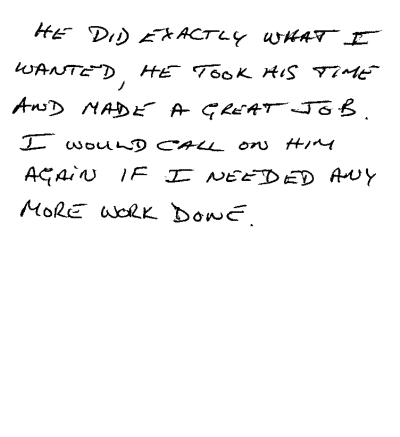 HE DID EXACTLY WHAT I
WANTED, HE TOOK HIS TIME
AND MADE A GREAT JOB.
I WOULD CALL ON HIM
AGAIN IF I NEEDED ANY
MORE WORK DONE.